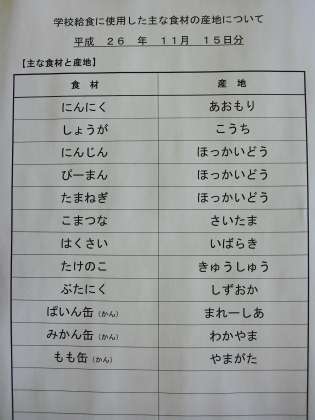 学校給食に使用した主な食材の産地について
平成 26 年 11月 15日分
【主な食材と産地】
食 材 産 地
にんにく あおもり
しょうが こうち
にんじん ほっかいどう
ぴーまん ほっかいどう
たまねぎ ほっかいどう
こまつな さいたま
はくさい いばらき
たけのこ きゅうしゅう
ぶたにく しずおか
ぱいん缶（かん） まれーしあ
みかん缶（かん） わかやま
もも缶（かん） やまがた